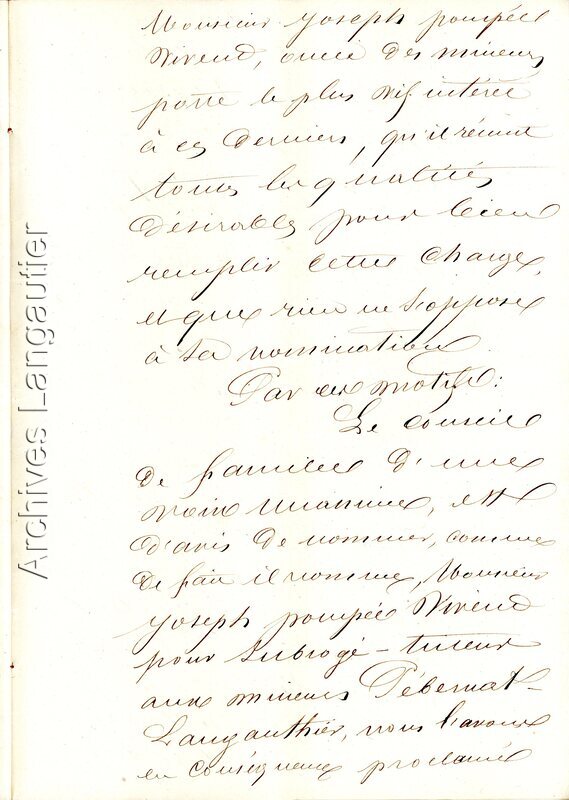 Monsieur Joseph pompée
Vivend, oncle des mineurs
porte le plus vif intérêt
à ces Derniers, qu'il réunit
toutes les qualités
désirables pour bien
remplir cette charge,
et que rien ne s'oppose
à sa nomination.
Par ces motifs:
Le conseil
de famille d'une
voix unanime, est
d'avis de nommer, comme
de fait il nomme, Monsieur
Joseph pompée Vivend
pour Subrogé-tuteur
aux mineurs Pébernat-
Langauthier, nous l'avons
en conséquence proclamé
Archives Langautier